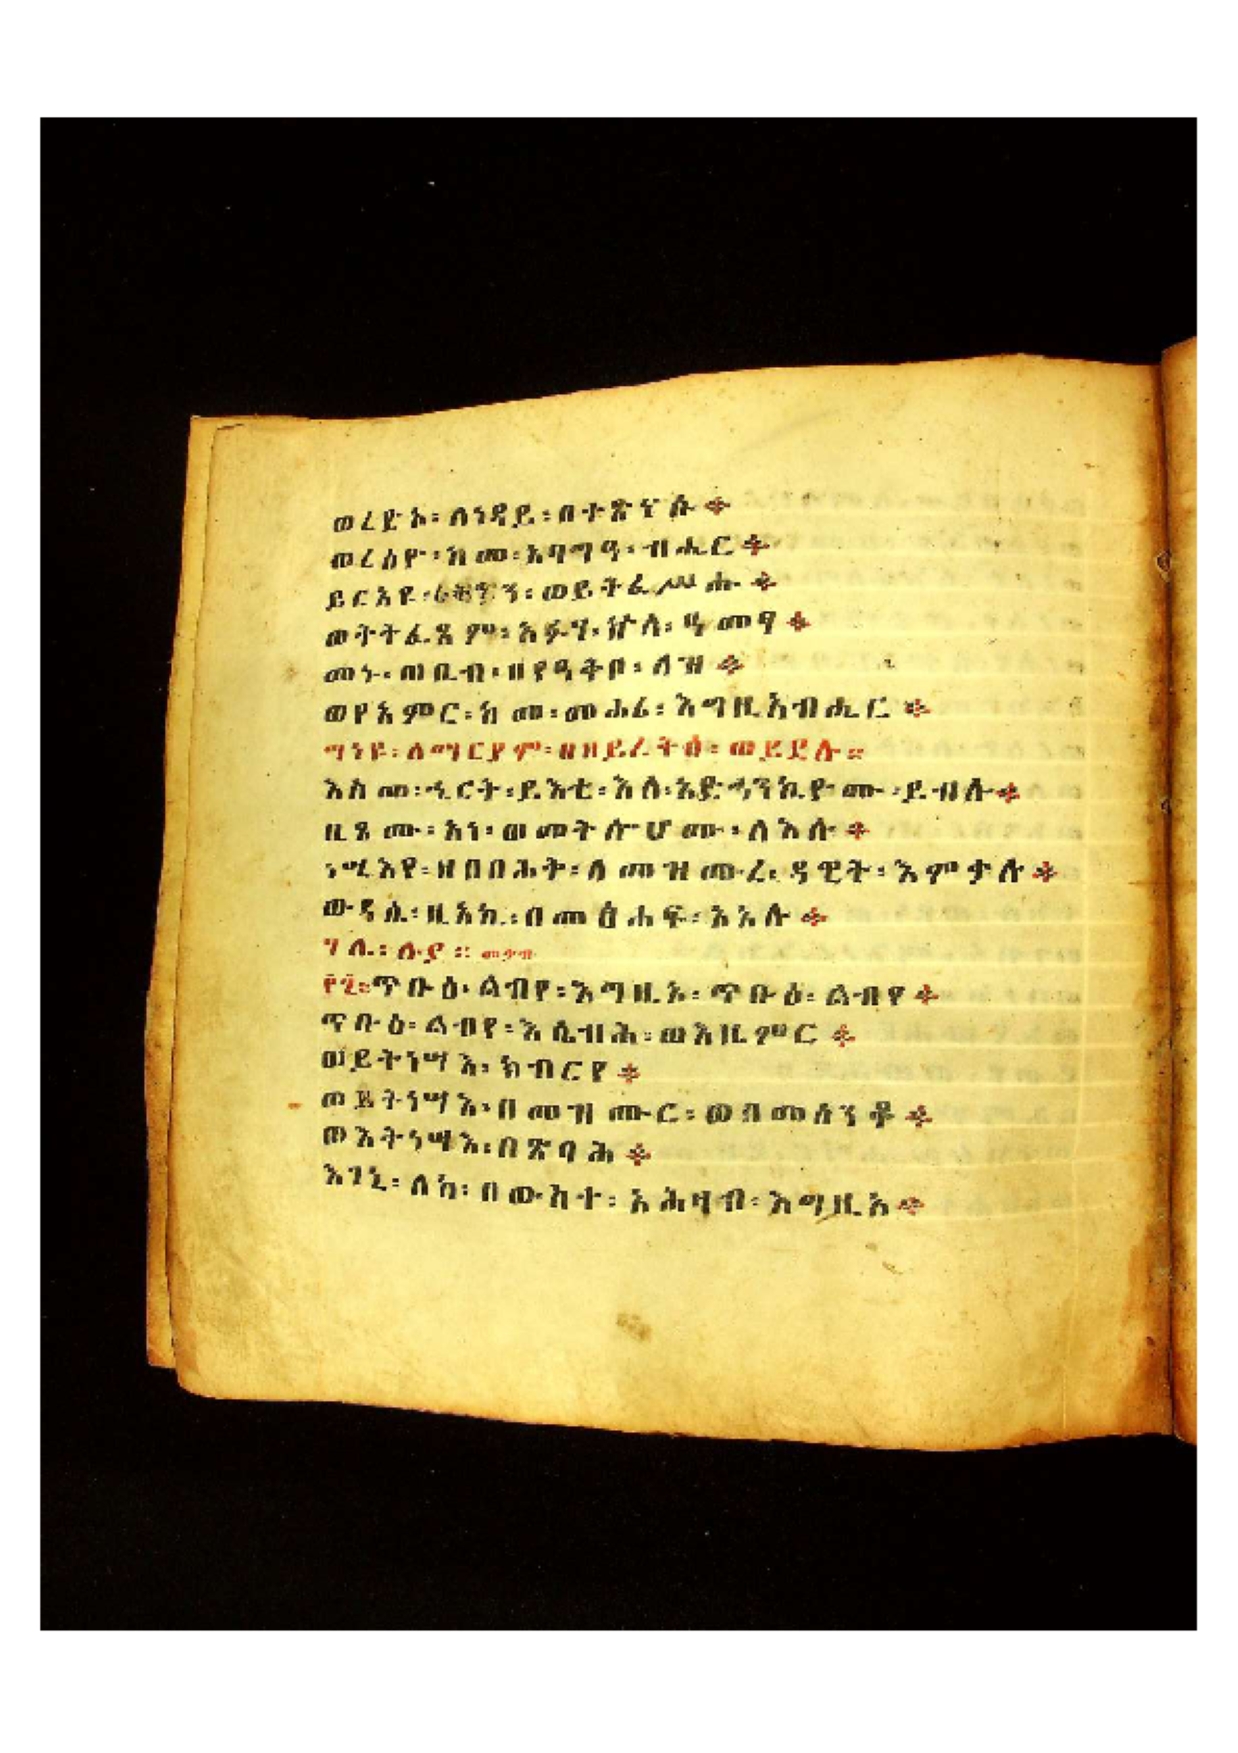 ወረድኦ ፡ ለነዳይ ፡ በተጽናሱ ።
ወረሰዮ ፡ ከመ ፡ አባግዓ ፡ ብሔር ።
ይርአዩ ፡ ራቱዓን ፡ ወይትፌሥሑ ።
ወትትፌፀም ፡ አፉሃ ፡ ኵላ ፡ ዓመፃ ።
መኑ ፡ ጠቢብ ፡ ዘየዓቅቦ ፡ ለዝ ።
ወየአምር ፡ ከመ ፡ መሐሪ ፡ እግዚአብሔር ።
ግነዩ ፡ ለማርያም ፡
እስመ ፡ ኄርት ፡ ይእቲ ፡ እለ ፡ አድኃንኪዮሙ ፡ ይብሉ ።
ዚፀሙ ፡ አነ ፡ ወመትሉሆሙ ፡ ለእሉ ።
ነሚእየ ፡ ዘበበሕት ፡ ለመዝሙረ ፡ ዳዊት ፡ እምታሉ ።
ውዳሴ ፡ ዚአኪ ፡ በመፅሐፍ ፡ እኤሉ ።
ሃሌ ፡ ሉያ ።
፻፯ ፡ ጥቡዕ ፡ ልብየ ፡ እግዚኦ ፡ ጥቡዕ ፡ ልብየ ።
ጥቡዕ ፡ ልብየ ፡ እሴብሕ ፡ ወእዜምር ።
ወይትነሣእ ፡ ክብርየ ።
ወይትነሣእ ፡ በመዝሙር ፡ ወበመሰንቆ ።
ወእትነሣእ ፡ በጽባሕ ።
እገኒ ፡ ለከ ፡ በውስተ ፡ አሕዛብ ፡ እግዚኦ ።